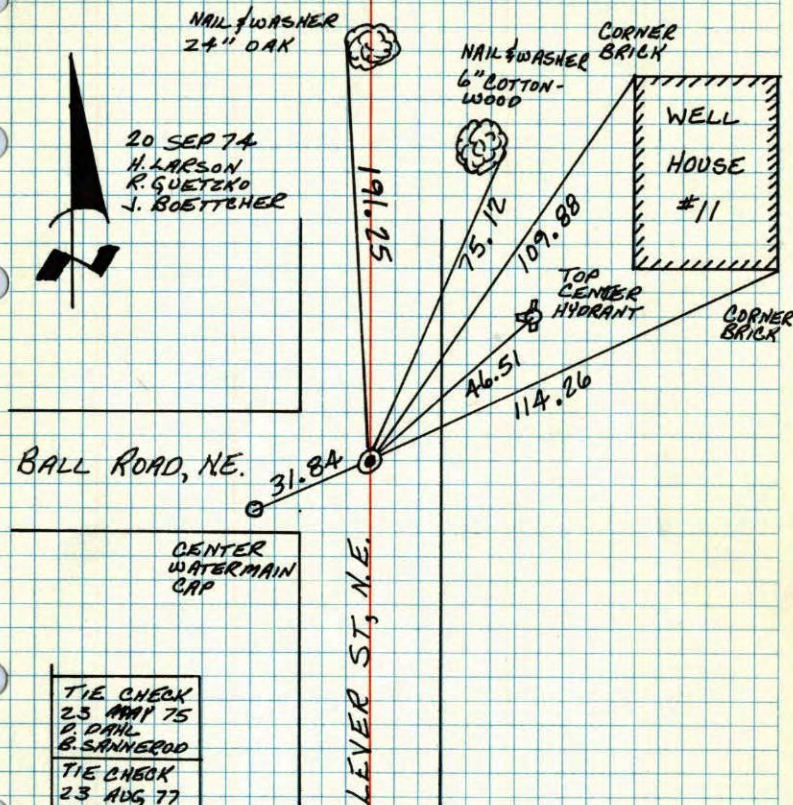 NAIL & WASHER
24" OAK
NAIL & WASHER
6" COTTON-
WOOD
CORNER
BRICK
WELL
HOUSE
#11
20 SEP 74
H. LARSON
R. GUETZKO
J. BOETTCHER
191.25
75.12
109.88
TOP
CENTER
HYDRANT
CORNER
BRICK
46.51
114.26
BALL ROAD, NE.
31.84
CENTER
WATERMAIN
CAP
LEVER ST, N.E.
TIE CHECK
23 MAY 75
D. DAHL
B. SANNEROD
TIE CHECK
23 AUG 77
N